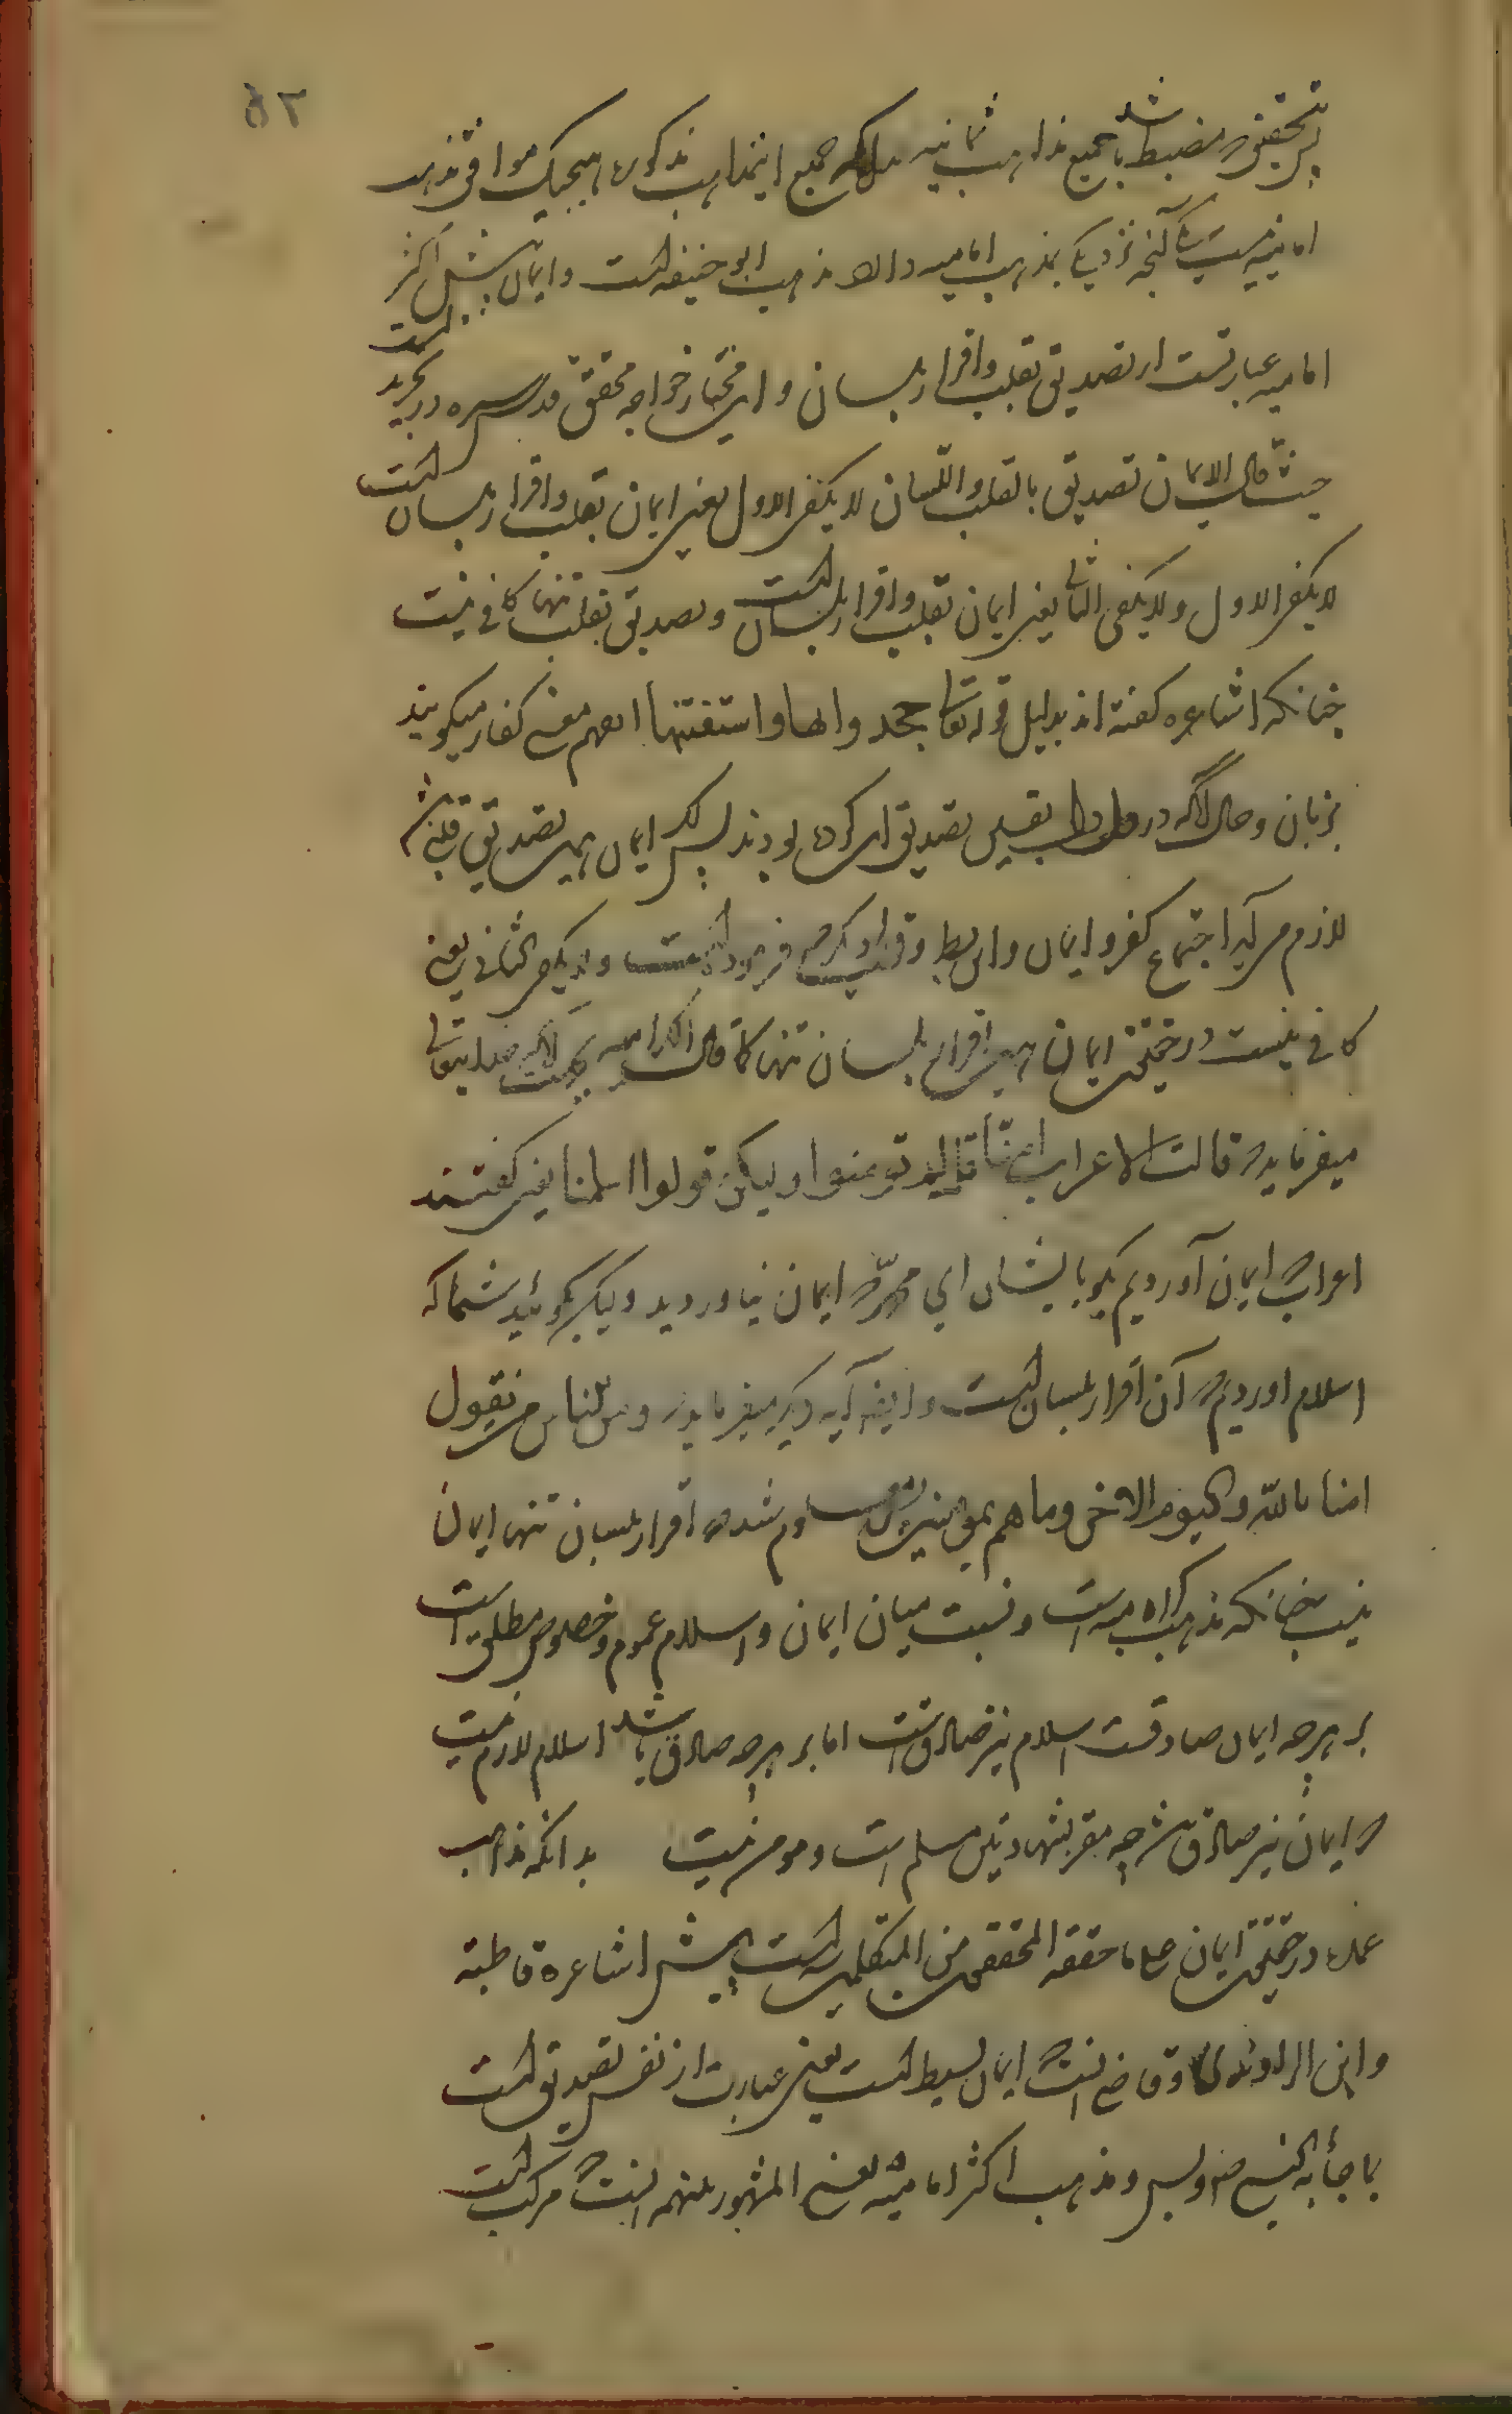 ۵۲
بتحقیق منضبط شد جمیع مذاهب ثمانیه جمیع اینمذاهب مذکوره هیچیک موافق مذهب
امامیه نیست آنچه نزدیک بمذهب امامیه مذهب ابو حنیفه است و ایمان پیش اکثر
امامیه عبارتست از تصدیق بقلب و اقرار بلسان و این مختار خواجه محقق قدس سره در تجرید است
حیث قال الایمان تصدیق بالقلب و اللسان لا یکفی الاول یعنی ایمان بقلب و اقرار بلسان است
لا یکفی الاول ولا یکفی الثانی یعنی ایمان بقلب و اقرار بلسان است و تصدیق بقلب تنها کافی نیست
چنانکه اشاعره گفته اند بدلیل قوله تعالی جحدوا بها و استیقنتها انفسهم یعنی کفار میگویند
بزبان و حال آنکه در تصدیق کرده بودند پس اگر ایمان همین تصدیق قلبی باشد
لازم می آید اجتماع کفر و ایمان و این باطل فرموده است و لا یکفی الثانی یعنی
کافی نیست در حقیقت ایمان همین اقرار بلسان تنها کما قال الکرامیه خدایتعالی
میفرماید که قالت الاعراب امنا قل لم تؤمنوا ولیکن قولوا اسلمنا یعنی گفتند
اعراب که ایمان آوردیم بگو بایشان ای محمد که ایمان نیاوردید ولیکن بگوئید شما که
اسلام اوردیم که آن اقرار بلسان است و ایضا آیه دیگر میفرماید که ومن الناس من یقول
امنا بالله والیوم الاخر وما هم بمؤمنین پس معلوم شد که اقرار بلسان تنها ایمان
نیست چنانکه مذهب کرامیه است و نسبت میان ایمان و اسلام عموم و خصوص مطلق است
بر هرچه ایمان صادقست اسلام نیز صادق است اما بر هرچه صادق باشد اسلام لازم نیست
که ایمان نیز صادق باشد چه مقر بشهادتین مسلم است و مومن نیست بدانکه مذاهب
عمده در حقیقت ایمان علی ما حققه المحققین من المتکلمین است پیش اشاعره قاطبة
و ابن الراوندی انست که ایمان بسیط است یعنی عبارت از نفس تصدیق است
بما جاء به النبی ص و بس و مذهب اکثر امامیه یعنی المشهور منهم انست که مرکب است